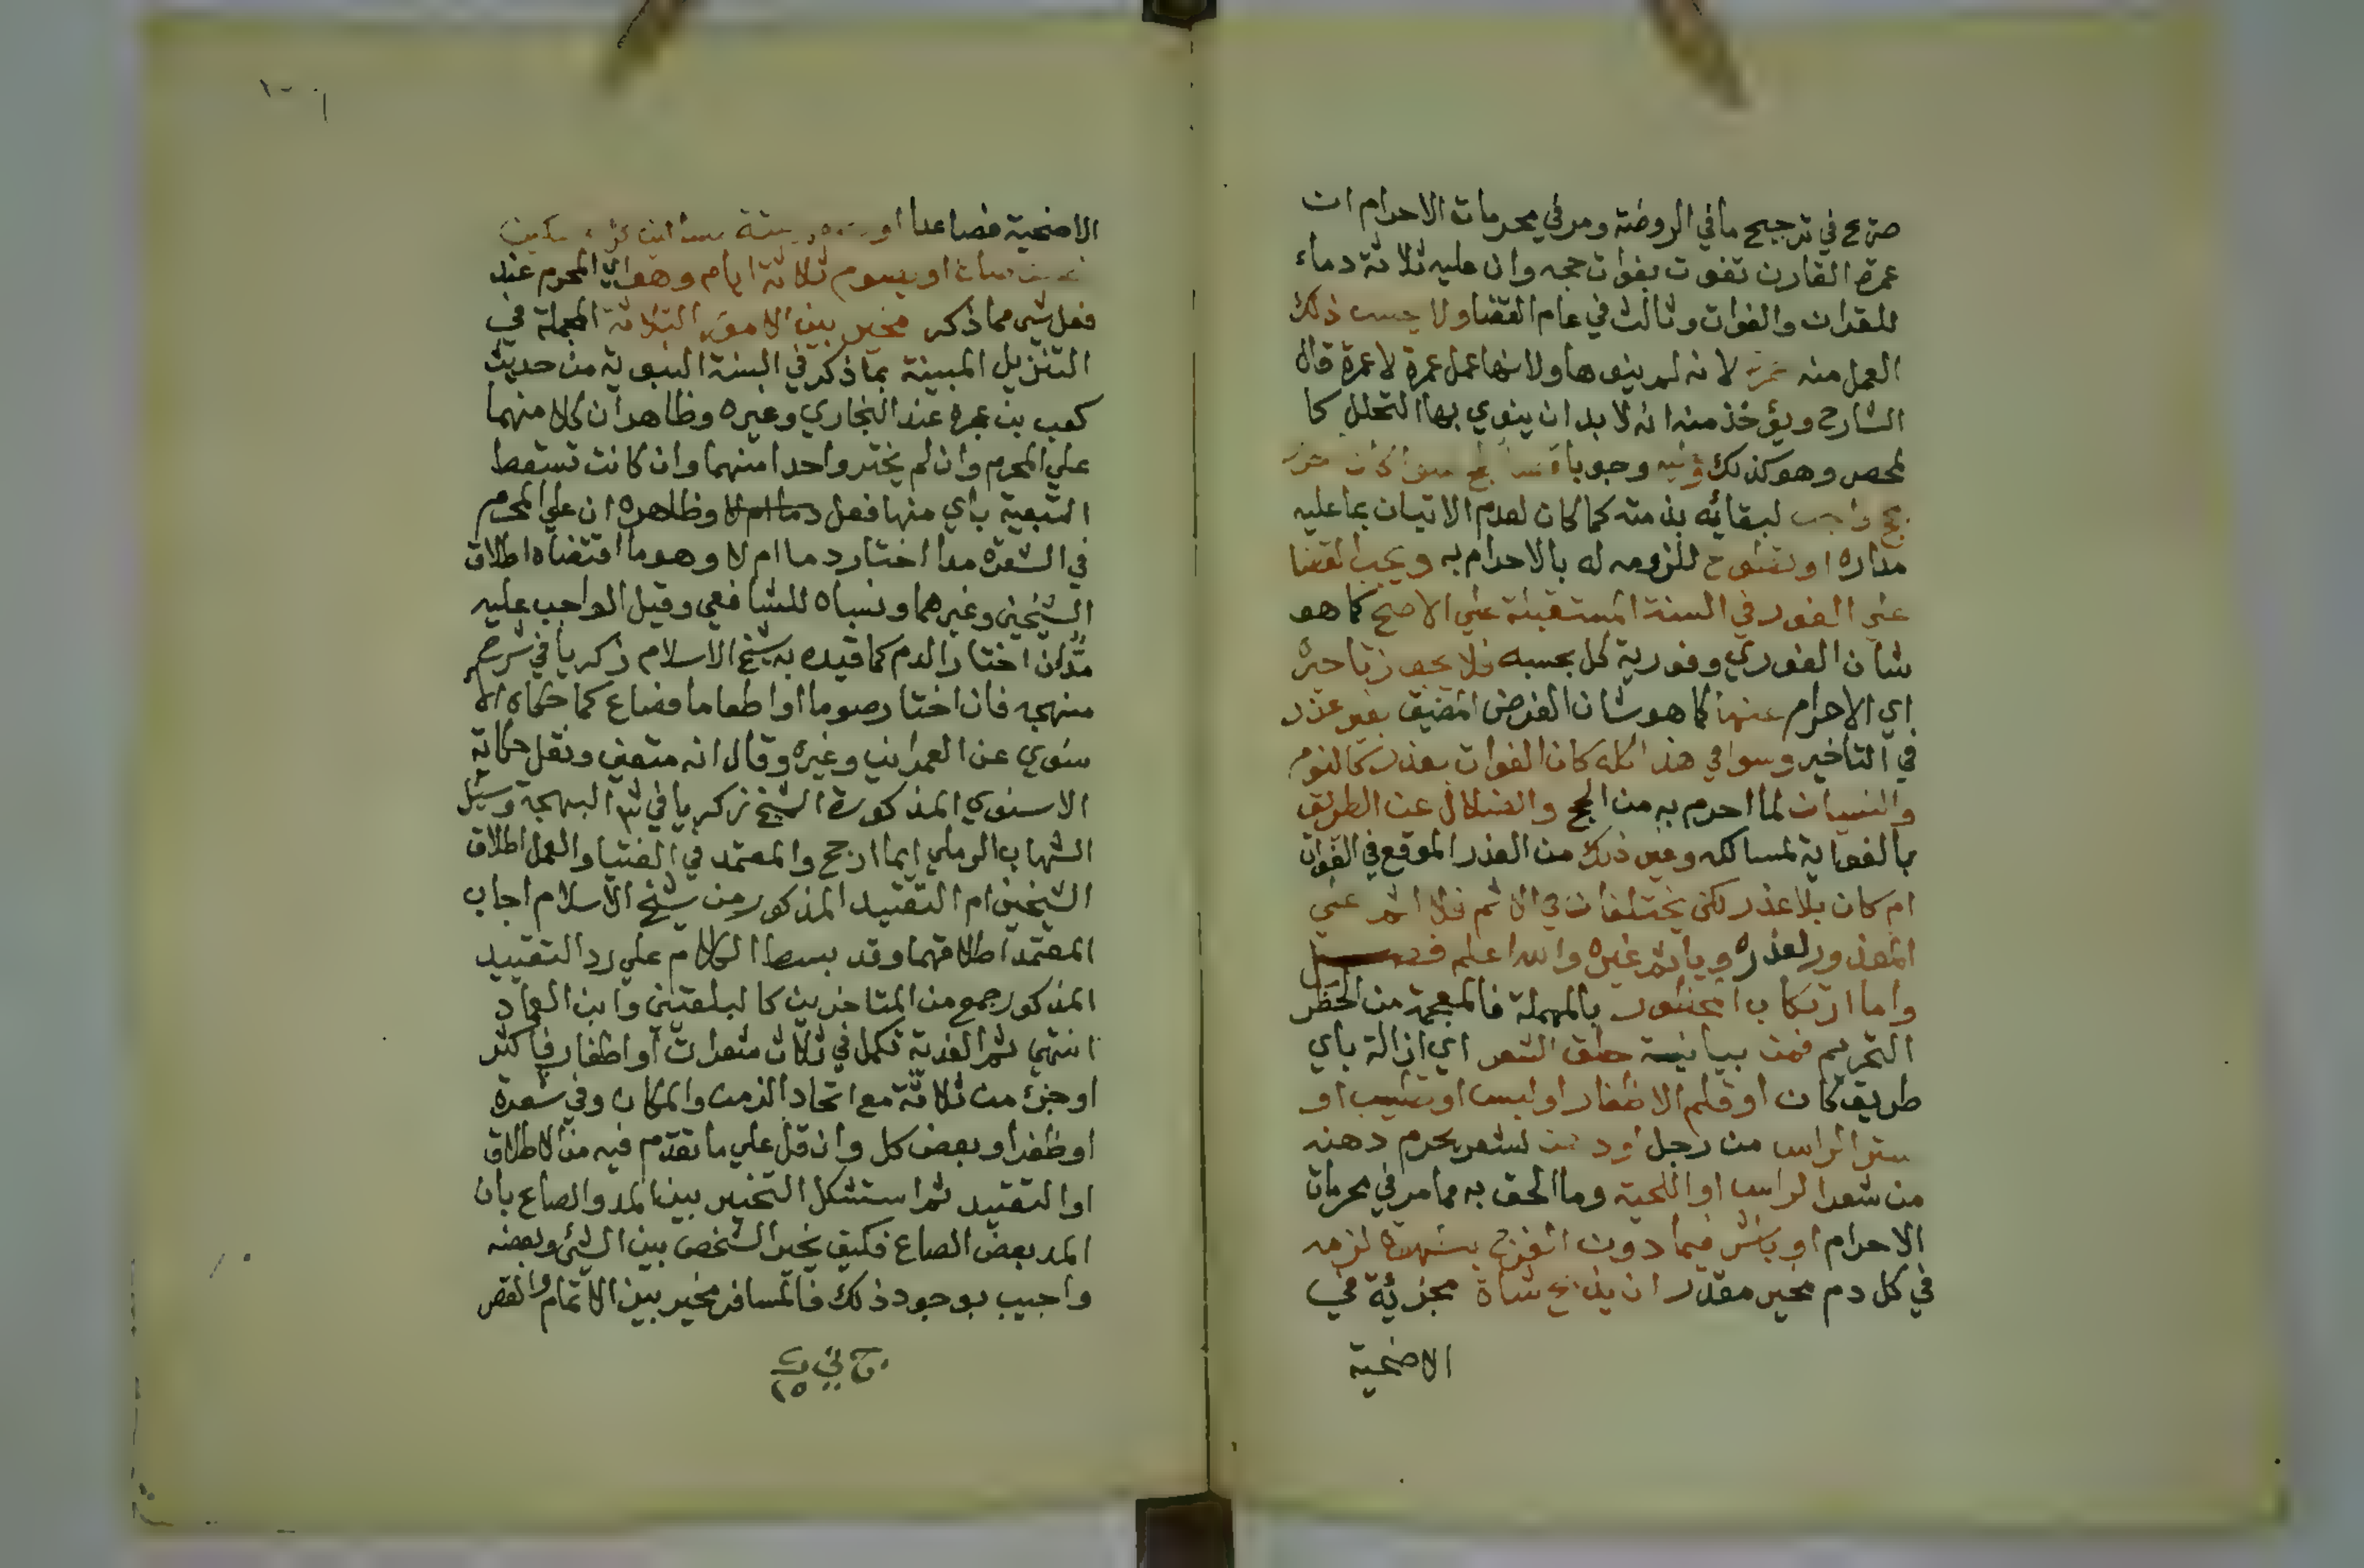 صرح في ترجيح ما في الروضة ومر في محرمات الاحرام ان
عمرة القارن تفوت بفوات حجه وان عليه ثلاثة دماء
للقران والفوات وثالث في عام القضا ولا يحسب ذلك
العمل منه عمرة لانه لم ينوها ولانها عمل عمرة لا عمرة قال
الشارح ويؤخذ منه انه لا بد ان ينوي بها التحلل كا
لمحصر وهو كذلك وجوبا سوا كان
لبقائه بذمته كما كان لعدم الاتيان بما عليه
مداره او تطوع للزومه له بالاحرام به ويجب القضا
علي الفور في السنة المستقبلة علي الاصح كما هو
شان الفوري وفورية كل بحسبه فلا يجوز تاخيره
اي الاحرام عنها كما هو شان الفرض المضيق بغير عذر
في التاخير وسوا في هذا كله كان الفوات بعذر كالنوم
والنسيان لما احرم به من الحج والضلال عن الطريق
بالغواية لمسالكه وغير ذلك من العذر الموقع في الفوات
ام كان بلا عذر لكن يختلفان في الاثم فلا اثم علي
المعذور لعذره وياثم غيره والله اعلم
واما ارتكاب المحظور بالمهملة فالمعجمة من الحظر
التحريم فمن حلق الشعر اي ازالة باي
طريق كان او قلم الاظفار او لبس او تطيب او
ستر الراس من رجل او دهن لشعر يحرم دهنه
من شعر الراس او اللحية وما الحق به مما مر في محرمات
الاحرام او باشر فيما دون الفرج بشهوة لزمه
في كل دم مخير مقدر ان يذبح شاة مجزئة في
الاضحية
الاضحية فصاعدا او ستة مساكين كل مسكين
نصف صاع او يصوم ثلاثة ايام وهو اي المحرم عند
فعل شي مما ذكر مخير بين الامور الثلاثة المجملة في
التنزيل المبينة بما ذكر في السنة النبوية من حديث
كعب بن عجرة عند البخاري وغيره وظاهر ان كلا منهما
علي المحرم وان لم يختر واحدا منهما وان كانت تسقط
التبعية باي منها فعل دما ام لا وظاهره ان علي المحرم
في الشعرة مدا اختار دما ام لا وهو ما اقتضاه اطلاق
الشيخين وغيرهما ونسباه للشافعي وقيل الواجب عليه
مد ان اختار الدم كما قيده به شيخ الاسلام زكريا في شرح
منهجه فان اختار صوما او اطعاما فصاع كما حكاه الا
سنوي عن العمراني وغيره وقال انه متعين ونقل حكاية
الاسنوي المذكورة الشيخ زكريا في شر البهجة وسئل
الشهاب الرملي ايما ارجح والمعتمد في الفتيا والعمل اطلاق
الشيخين ام التقييد المذكور من شيخ الاسلام اجاب
المعتمد اطلاقهما وقد بسط الكلام علي رد التقييد
المذكور جمع من المتاخرين كالبلقيني وابن العماد
انتهي ثم الفدية تكمل في ثلاث شعرات او اظفار فاكثر
او جزء من ثلاثة مع اتحاد الزمن والمكان وفي شعرة
او ظفر او بعض كل وان قل علي ما تقدم فيه من الاطلاق
او التقييد ثم استشكل التخيير بين المد والصاع بان
المد بعض الصاع فكيف يخير الشخص بين الشيء وبعضه
واجيب بوجود ذلك فالمسافر مخير بين الاتمام والقصر